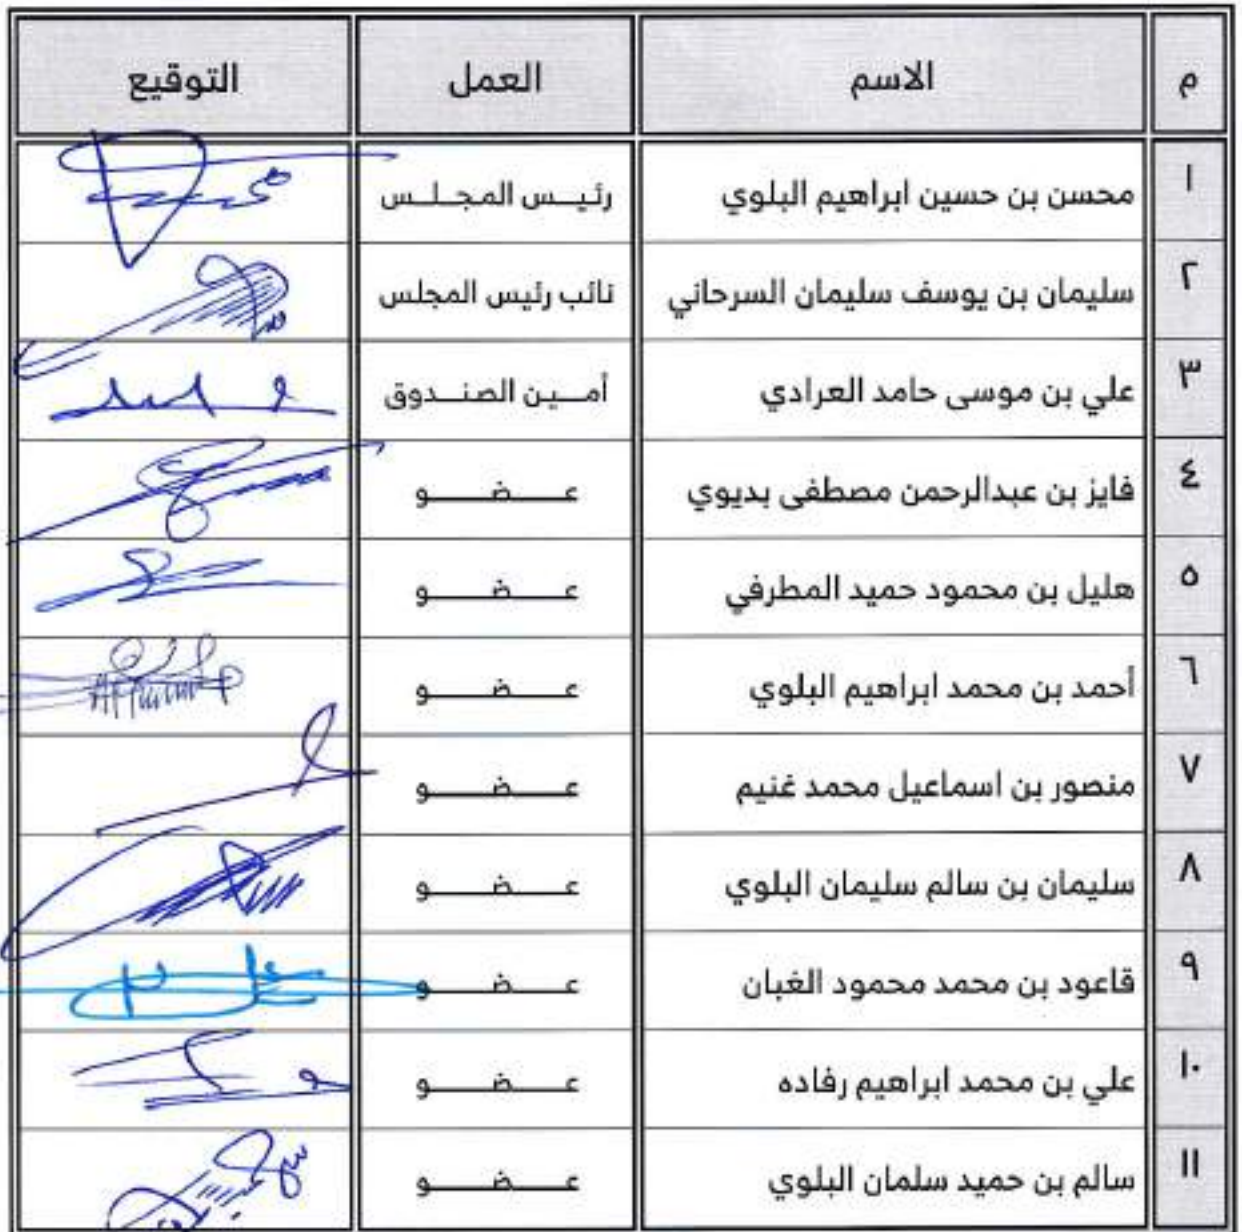 م الاسم العمل التوقيع
١ محسن بن حسين ابراهيم البلوي رئيــس المجــلــس
٢ سليمان بن يوسف سليمان السرحاني نائب رئيس المجلس
٣ علي بن موسى حامد العرادي أمــين الصنــدوق
٤ فايز بن عبدالرحمن مصطفى بديوي عـــضـــو
٥ هليل بن محمود حميد المطرفي عـــضـــو
٦ أحمد بن محمد ابراهيم البلوي عـــضـــو
٧ منصور بن اسماعيل محمد غنيم عـــضـــو
٨ سليمان بن سالم سليمان البلوي عـــضـــو
٩ قاعود بن محمد محمود الغبان عـــضـــو
١٠ علي بن محمد ابراهيم رفاده عـــضـــو
١١ سالم بن حميد سلمان البلوي عـــضـــو